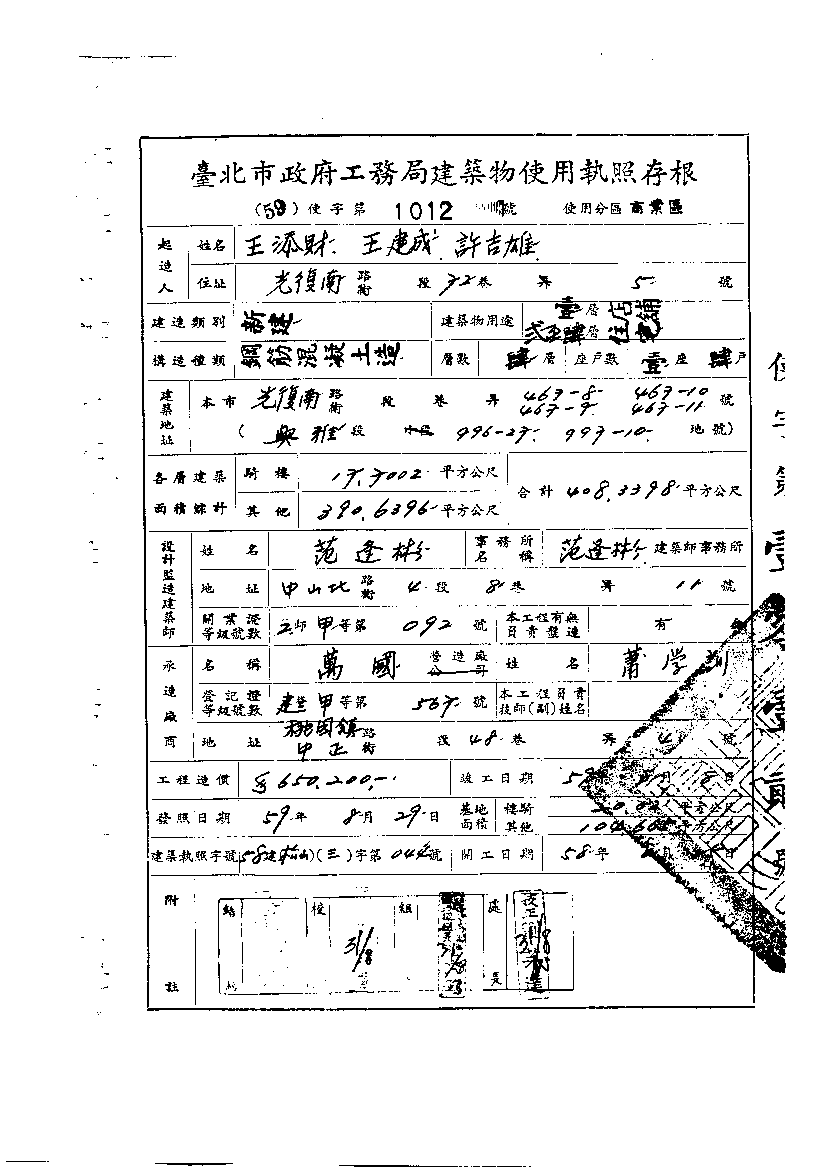 臺北市政府工務局建築物使用執照存根
(59)使字第 1012 號 使用分區 商業區
起造人 姓名 王添財 王建成 許吉雄
住址 光復南 路街 段 72 巷 弄 5 號
建造類別 新建 建築物用途 壹層 店鋪 貳至肆層 住宅
構造種類 鋼筋混凝土造 層數 肆層 座戶數 壹座 肆戶
建築地址 本市 光復南 路街 段 巷 弄 467-8 467-10 467-9 467-11 號
( 興雅段 小段 996-27 997-10 地號)
各層建築面積總計 騎樓 17.7002 平方公尺 合計 408.3398 平方公尺
其他 390.6396 平方公尺
設計監造建築師 姓名 范逢彬 事務所名稱 范逢彬 建築師事務所
地址 中山北 路街 4 段 8 巷 弄 11 號
開業證等級號數 師 甲 等第 092 號 本工程有無負責監造 有
承造廠商 名稱 萬國 營造廠公司 姓名 蕭學
登記證等級號數 甲 等第 567 號 本工程負責技師(副)姓名
地址 桃園鎮中正 路街 段 48 巷 弄 4 號
工程造價 650,200 竣工日期 58 月 8 日
發照日期 59 年 8 月 29 日 基地面積 樓騎 平方公尺
其他 平方公尺
建築執照字號 58建(松山)(三)字第 044 號 開工日期 58 年 月 日
附註 校 31/8 組 處長
使字第壹零壹貳號